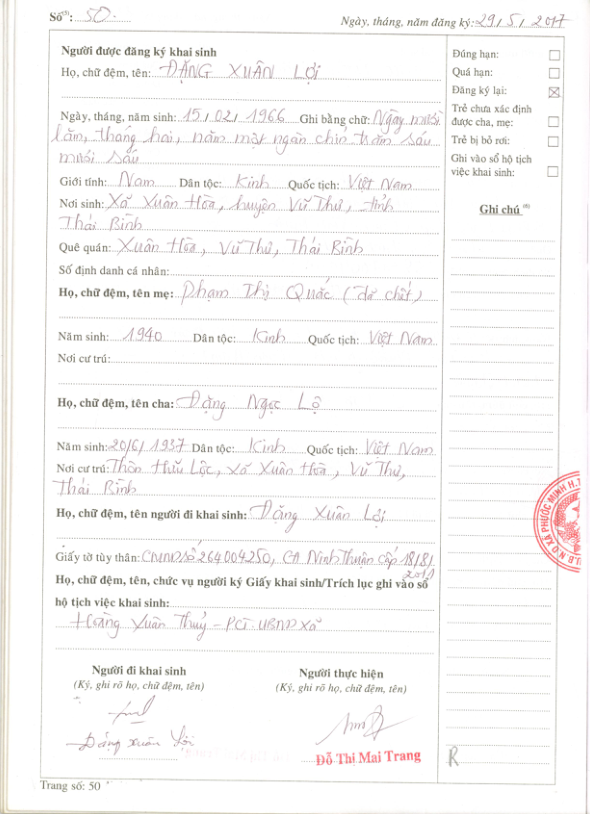 Số⁽⁵⁾: 50. Ngày, tháng, năm đăng ký: 29/5/2017
Người được đăng ký khai sinh
Họ, chữ đệm, tên: ĐẶNG XUÂN LỢI
Ngày, tháng, năm sinh: 15/02/1966 Ghi bằng chữ: Ngày mười
lăm, tháng hai, năm một ngàn chín trăm sáu
mươi sáu
Giới tính: Nam Dân tộc: Kinh Quốc tịch: Việt Nam
Nơi sinh: Xã Xuân Hòa, huyện Vũ Thư, tỉnh
Thái Bình
Quê quán: Xuân Hòa, Vũ Thư, Thái Bình
Số định danh cá nhân:
Họ, chữ đệm, tên mẹ: Phạm Thị Quắc (đã chết)
Năm sinh: 1940 Dân tộc: Kinh Quốc tịch: Việt Nam
Nơi cư trú:
Họ, chữ đệm, tên cha: Đặng Ngọc Lộ
Năm sinh: 20/6/1937 Dân tộc: Kinh Quốc tịch: Việt Nam
Nơi cư trú: Thôn Hữu Lộc, xã Xuân Hòa, Vũ Thư,
Thái Bình
Họ, chữ đệm, tên người đi khai sinh: Đặng Xuân Lợi
Giấy tờ tùy thân: CMND số 264004250, CA Ninh Thuận cấp 18/8/
2011
Họ, chữ đệm, tên, chức vụ người ký Giấy khai sinh/Trích lục ghi vào sổ
hộ tịch việc khai sinh:
Hoàng Xuân Thuỷ - PCT. UBND xã
Người đi khai sinh
(Ký, ghi rõ họ, chữ đệm, tên)
Đặng Xuân Lợi
Người thực hiện
(Ký, ghi rõ họ, chữ đệm, tên)
Đỗ Thị Mai Trang
Đúng hạn:
Quá hạn:
Đăng ký lại:
Trẻ chưa xác định
được cha, mẹ:
Trẻ bị bỏ rơi:
Ghi vào sổ hộ tịch
việc khai sinh:
Ghi chú ⁽⁶⁾
U.B.N.D XÃ PHƯỚC MINH H.T
R
Trang số: 50